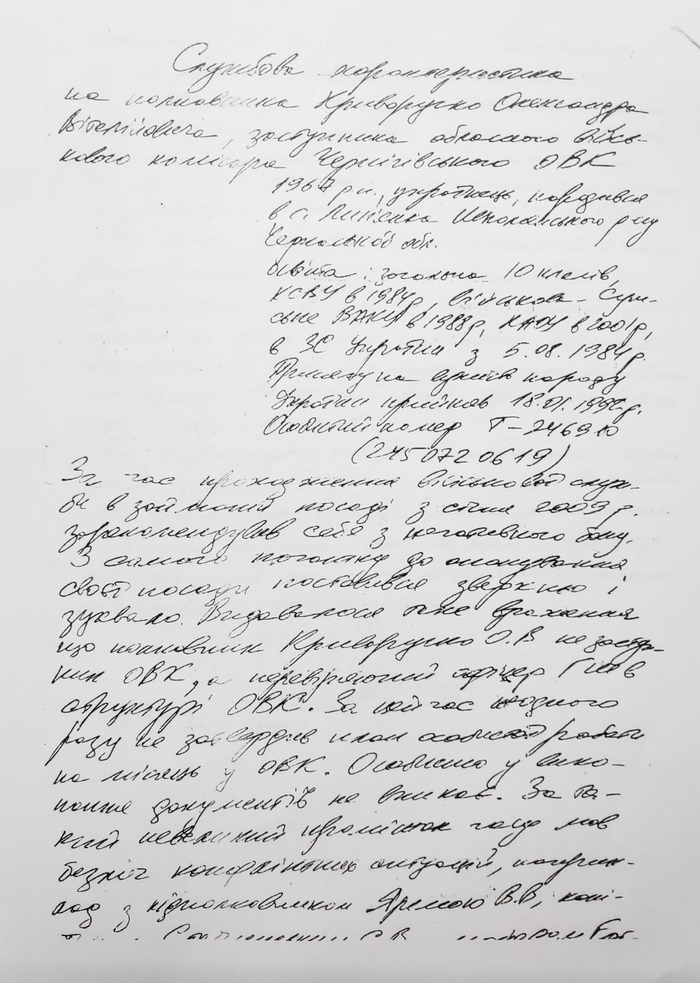 Службова характеристика
на полковника Криворучко Олександра
Віталійовича, заступника обласного війсь-
кового комісара Чернігівського ОВК
1967 р.н., українець, народився
в с. р-ну
обл.
освіта: загальна 10 класів,
КСВУ в 1984р, військова - Сум-
ське ВАКУ в 1988р, НАОУ в 2001р,
в ЗС України з 5.08.1984р.
Присягу на вірність народу
України прийняв 18.01.1992р.
Особистий номер Т-246910
(2450720619)
За час проходження військової служ-
би в займаній посаді з січня 2009 р.
зарекомендував себе з негативного боку.
З самого початку до опанування
своєї посади поставився зверхньо і
зухвало. Видавалося таке враження
що полковник Криворучко О.В не заступ-
ник ОВК, а перевіряючий офіцер ГШ в
структурі ОВК. За цей час жодного
разу не затвердив план особистої роботи
на місяць у ОВК. Особисто у вико-
нання документів не вникав. За та-
кий невеликий проміжок часу мав
безліч конфліктних ситуацій, наприк-
лад з підполковником Яремою В.В,